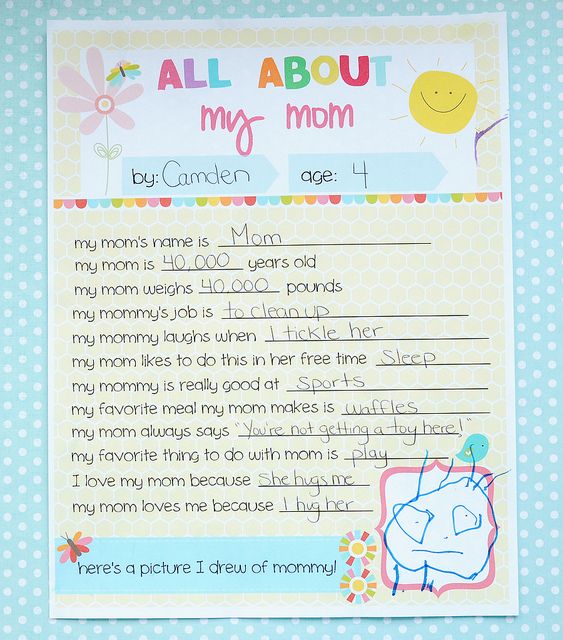 ALL ABOUT
my mom
by: Camden age: 4
my mom's name is Mom
my mom is 40,000 years old
my mom weighs 40,000 pounds
my mommy's job is to clean up
my mommy laughs when I tickle her
my mom likes to do this in her free time Sleep
my mommy is really good at sports
my favorite meal my mom makes is waffles
my mom always says "You're not getting a toy here!"
my favorite thing to do with mom is play
I love my mom because She hugs me
my mom loves me because I hug her
here's a picture I drew of mommy!